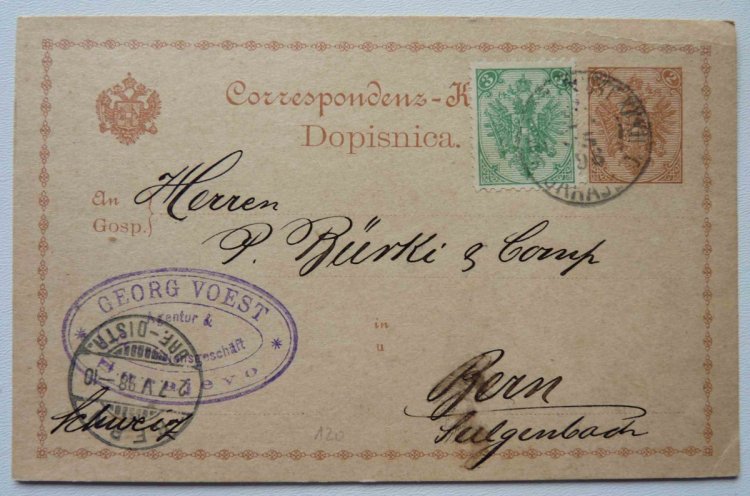 Correspondenz-K
Dopisnica.
3 3
2
An
Gosp.}
Herren
P. Bürki & Comp
GEORG VOEST
Agentur &
onsgeschäft
evo
BRE-DISTR.
27 V 98 -10
in
u
Bern
Sulgenbach
Schweiz
120